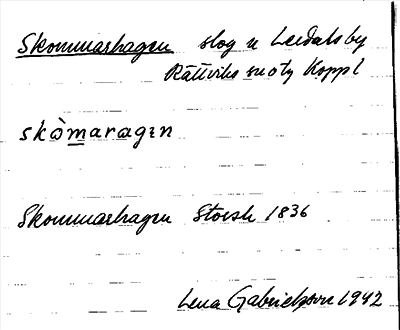 Skommarhagen skog u Leidals by
Rättviks sn o tg Koppl
skòmaragɪn
Skommarhagen Storsk 1836
Lena Gabrielsson 1942